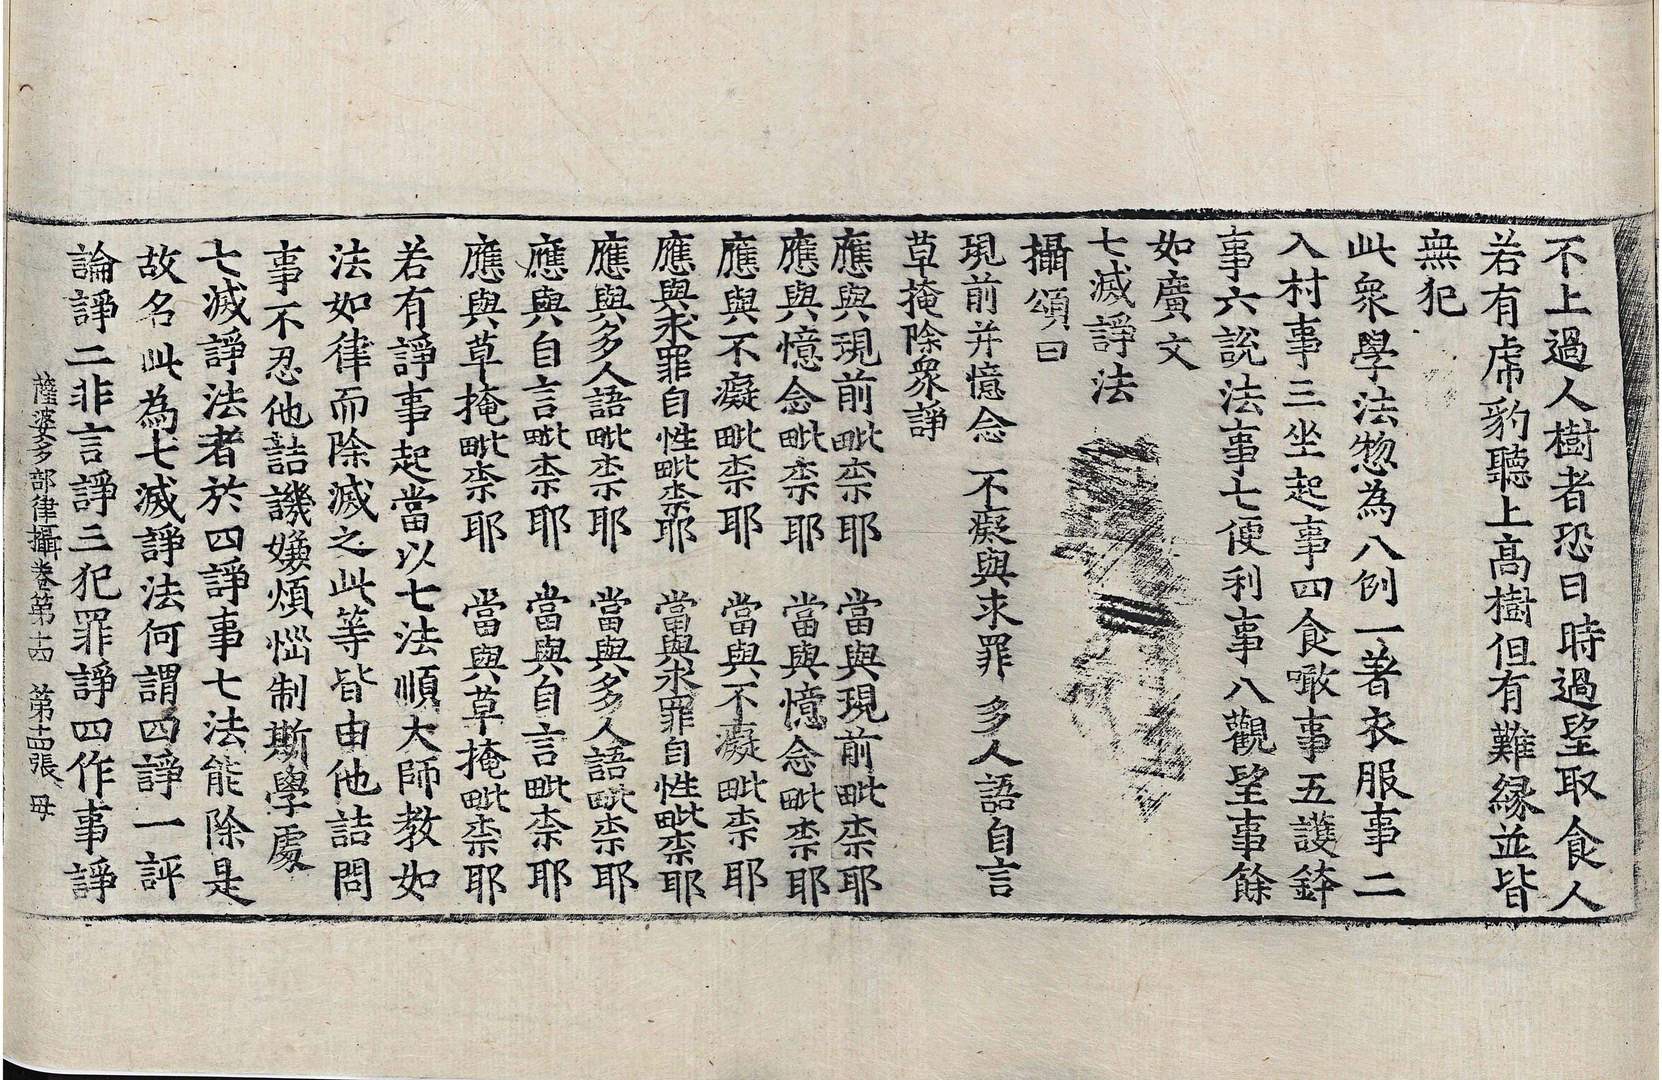 不上過人樹者恐日時過望取食人
若有虎豹聽上高樹但有難緣並皆
無犯
此眾學法惣為八例一著衣服事二
入村事三坐起事四食噉事五護鉢
事六說法事七便利事八觀望事餘
如廣文
七滅諍法
攝頌曰
現前并憶念 不癡與求罪 多人語自言
草掩除眾諍
應與現前毗柰耶 當與現前毗柰耶
應與憶念毗柰耶 當與憶念毗柰耶
應與不癡毗柰耶 當與不癡毗柰耶
應與求罪自性毗柰耶 當與求罪自性毗柰耶
應與多人語毗柰耶 當與多人語毗柰耶
應與自言毗柰耶 當與自言毗柰耶
應與草掩毗柰耶 當與草掩毗柰耶
若有諍事起當以七法順大師教如
法如律而除滅之此等皆由他詰問
事不忍他詰譏嫌煩惱制斯學處
七滅諍法者於四諍事七法能除是
故名此為七滅諍法何謂四諍一評
論諍二非言諍三犯罪諍四作事諍
薩婆多部律攝卷第十四 第十四張 母